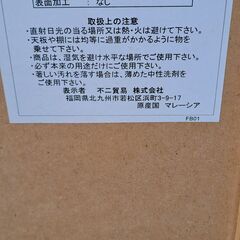 表面加工　：　なし
取扱上の注意
・直射日光の当る場所又は熱・火は避けて下さい。
・天板や棚には均等に過重がかかるように物を
乗せて下さい。
・商品は、湿気を避け水平な場所でご使用下さい。
・必ず本来の用途だけにご使用下さい。
・著しい汚れを落す場合は、薄めた中性洗剤を
ご使用下さい。
表示者　不二貿易　株式会社
福岡県北九州市若松区浜町3-9-17
原産国　マレーシア
FB01